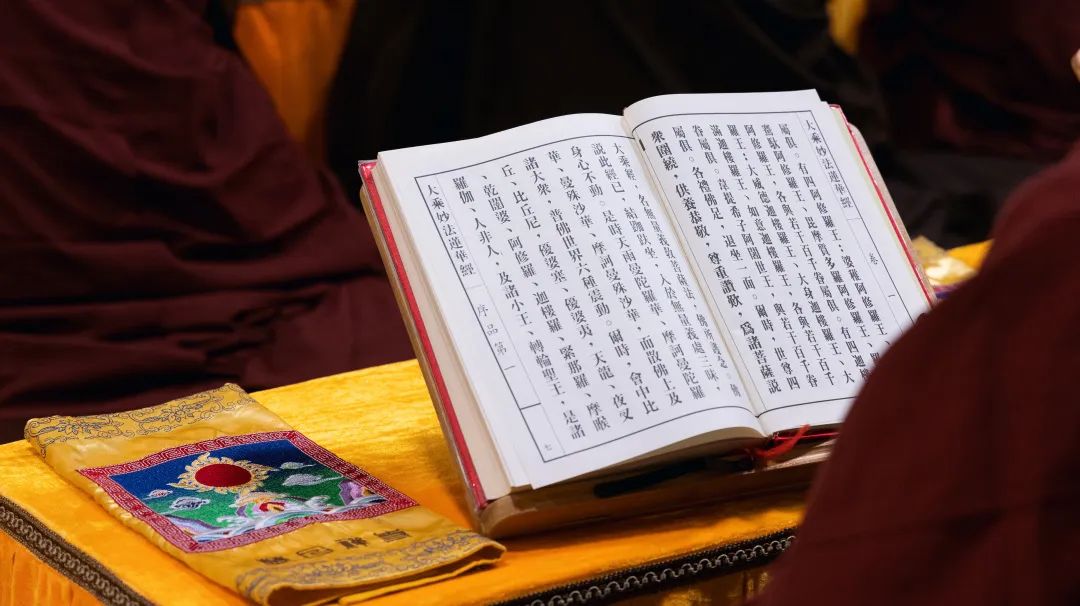 大乘妙法蓮華經 卷一
屬俱。有四阿修羅王：婆稚阿修羅王、
騫馱阿修羅王、毘摩質多羅阿修羅王、
阿修羅王，各與若干百千眷屬俱。有四迦樓
羅王：大威德迦樓羅王、大身迦樓羅王、大
滿迦樓羅王、如意迦樓羅王，各與若干百千
眷屬俱。韋提希子阿闍世王，與若干百千眷
屬俱。各禮佛足，退坐一面。爾時，世尊四
眾圍繞，供養恭敬，尊重讚歎，為諸菩薩說
大乘經，名無量義教菩薩法，佛所護念。佛
說此經已，結跏趺坐，入於無量義處三昧，
身心不動。是時天雨曼陀羅華、摩訶曼陀羅
華、曼殊沙華、摩訶曼殊沙華，而散佛上及
諸大眾，普佛世界六種震動。爾時，會中比
丘、比丘尼、優婆塞、優婆夷，天龍、夜叉
、乾闥婆、阿修羅、迦樓羅、緊那羅、摩睺
羅伽、人非人，及諸小王、轉輪聖王，是諸
大乘妙法蓮華經 序品第一 七